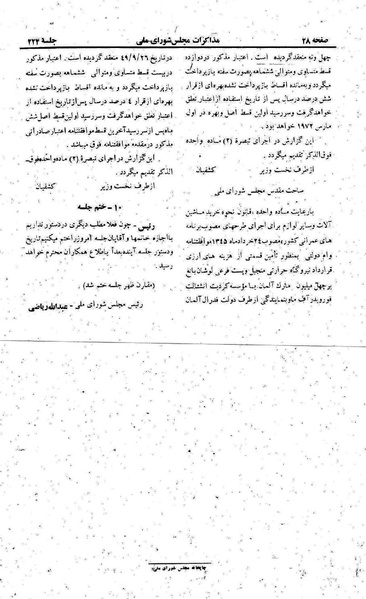 صفحه ۲۸
مذاکرات مجلس شورای ملی
جلسه ۲۲۴
چهل ونه منعقد گردیده است . اعتبار مذکور در دوازده
قسط متساوی ومتوالی ششماهه بصورت سفته بازپرداخت
میگردد وبه مانده اقساط بازپرداخت نشده بهره‌ای از قرار
شش درصد درسال پس از تاریخ استفاده از اعتبار تعلق
خواهد گرفت وسررسید اولین قسط اصل وبهره در اول
مارس ۱۹۷۲ خواهد بود .
این گزارش در اجرای تبصرهٔ (۲) ماده واحده
فوق الذکر تقدیم میگردد .
ازطرف نخست وزیر کشفیان
ساحت مقدس مجلس شورای ملی
بارعایت ماده واحده قانون نحوه خرید ماشین
آلات وسایر لوازم برای اجرای طرحهای مصوب برنامه
های عمرانی کشور مصوب ۲۴ خرداد ماه ۱۳۴۵ موافقتنامه
وام دولتی بمنظور تأمین قسمتی از هزینه های ارزی
قرارداد نیروگاه حرارتی منجیل ویست فرعی لوشان بالغ
بر چهل میلیون مارک آلمان با مؤسسه کردیت انشتالت
فورویدرآف باوبنمایندگی ازطرف دولت فدرال آلمان
درتاریخ ۴۹/۹/۲۶ منعقد گردیده است . اعتبار مذکور
دربیست قسط متساوی ومتوالی ششماهه بصورت سفته
بازپرداخت میگردد و به مانده اقساط بازپرداخت نشده
بهره‌ای ازقرار ۴ درصد درسال پس از تاریخ استفاده از
اعتبار تعلق خواهد گرفت وسررسید اولین قسط اصل شش
ماه پس از سررسید آخرین قسط موافقتنامه اعتبار صادراتی
مذکور درمقدمه موافقتنامه فوق میباشد .
این گزارش در اجرای تبصرهٔ (۲) ماده واحده فوق
الذکر تقدیم میگردد .
ازطرف نخست وزیر کشفیان
۱۰ - ختم جلسه
رئیس - چون فعلا مطلب دیگری دردستور نداریم
با اجازه خانمها وآقایان جلسه امروز را ختم میکنیم تاریخ
ودستور جلسه آینده بعداً باطلاع همکاران محترم خواهد
رسید .
(مقارن ظهر جلسه ختم شد)
رئیس مجلس شورای ملی - عبدالله ریاضی
چاپخانه مجلس شورای ملی